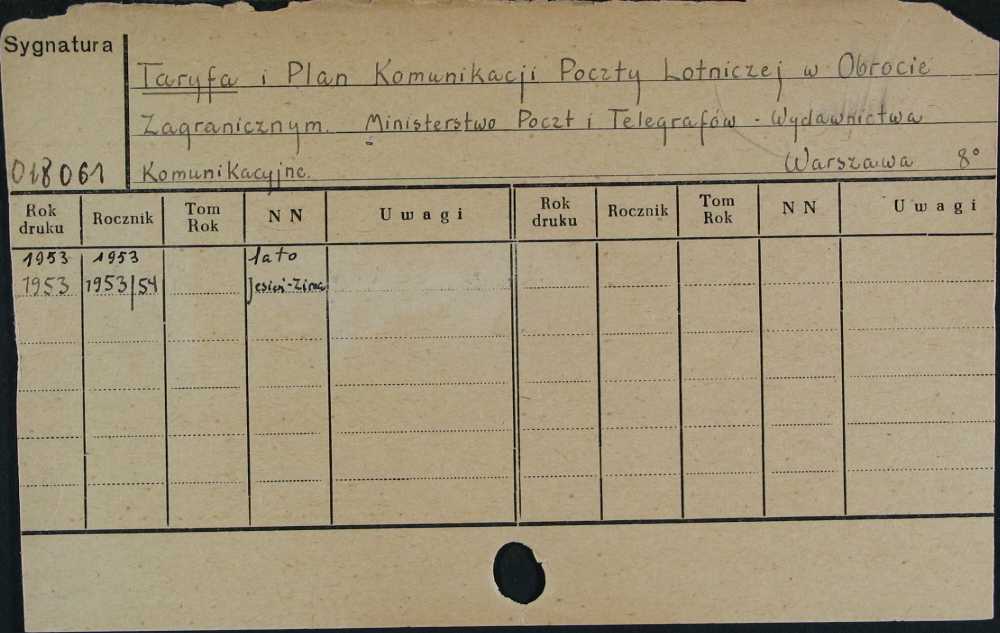 Sygnatura
Taryfa i Plan Komunikacji Poczty Lotniczej w Obrocie
Zagranicznym. Ministerstwo Poczt i Telegrafów - Wydawnictwa
018061 Komunikacyjne. Warszawa 8°
Rok druku Rocznik Tom Rok NN Uwagi Rok druku Rocznik Tom Rok NN Uwagi
1953 1953 lato
1953 1953/54 Jesień-Zima